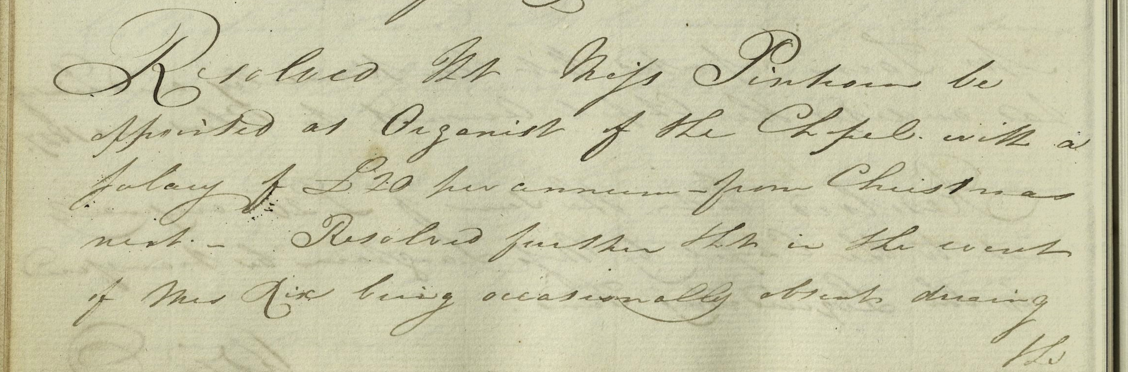 Resolved tht Miss Pinhorn be
appointed as Organist of the Chapel with a
salary of £20 per annum - from Christmas
next. - Resolved further tht in the event
of Mrs Rix being occasionally absent during
the